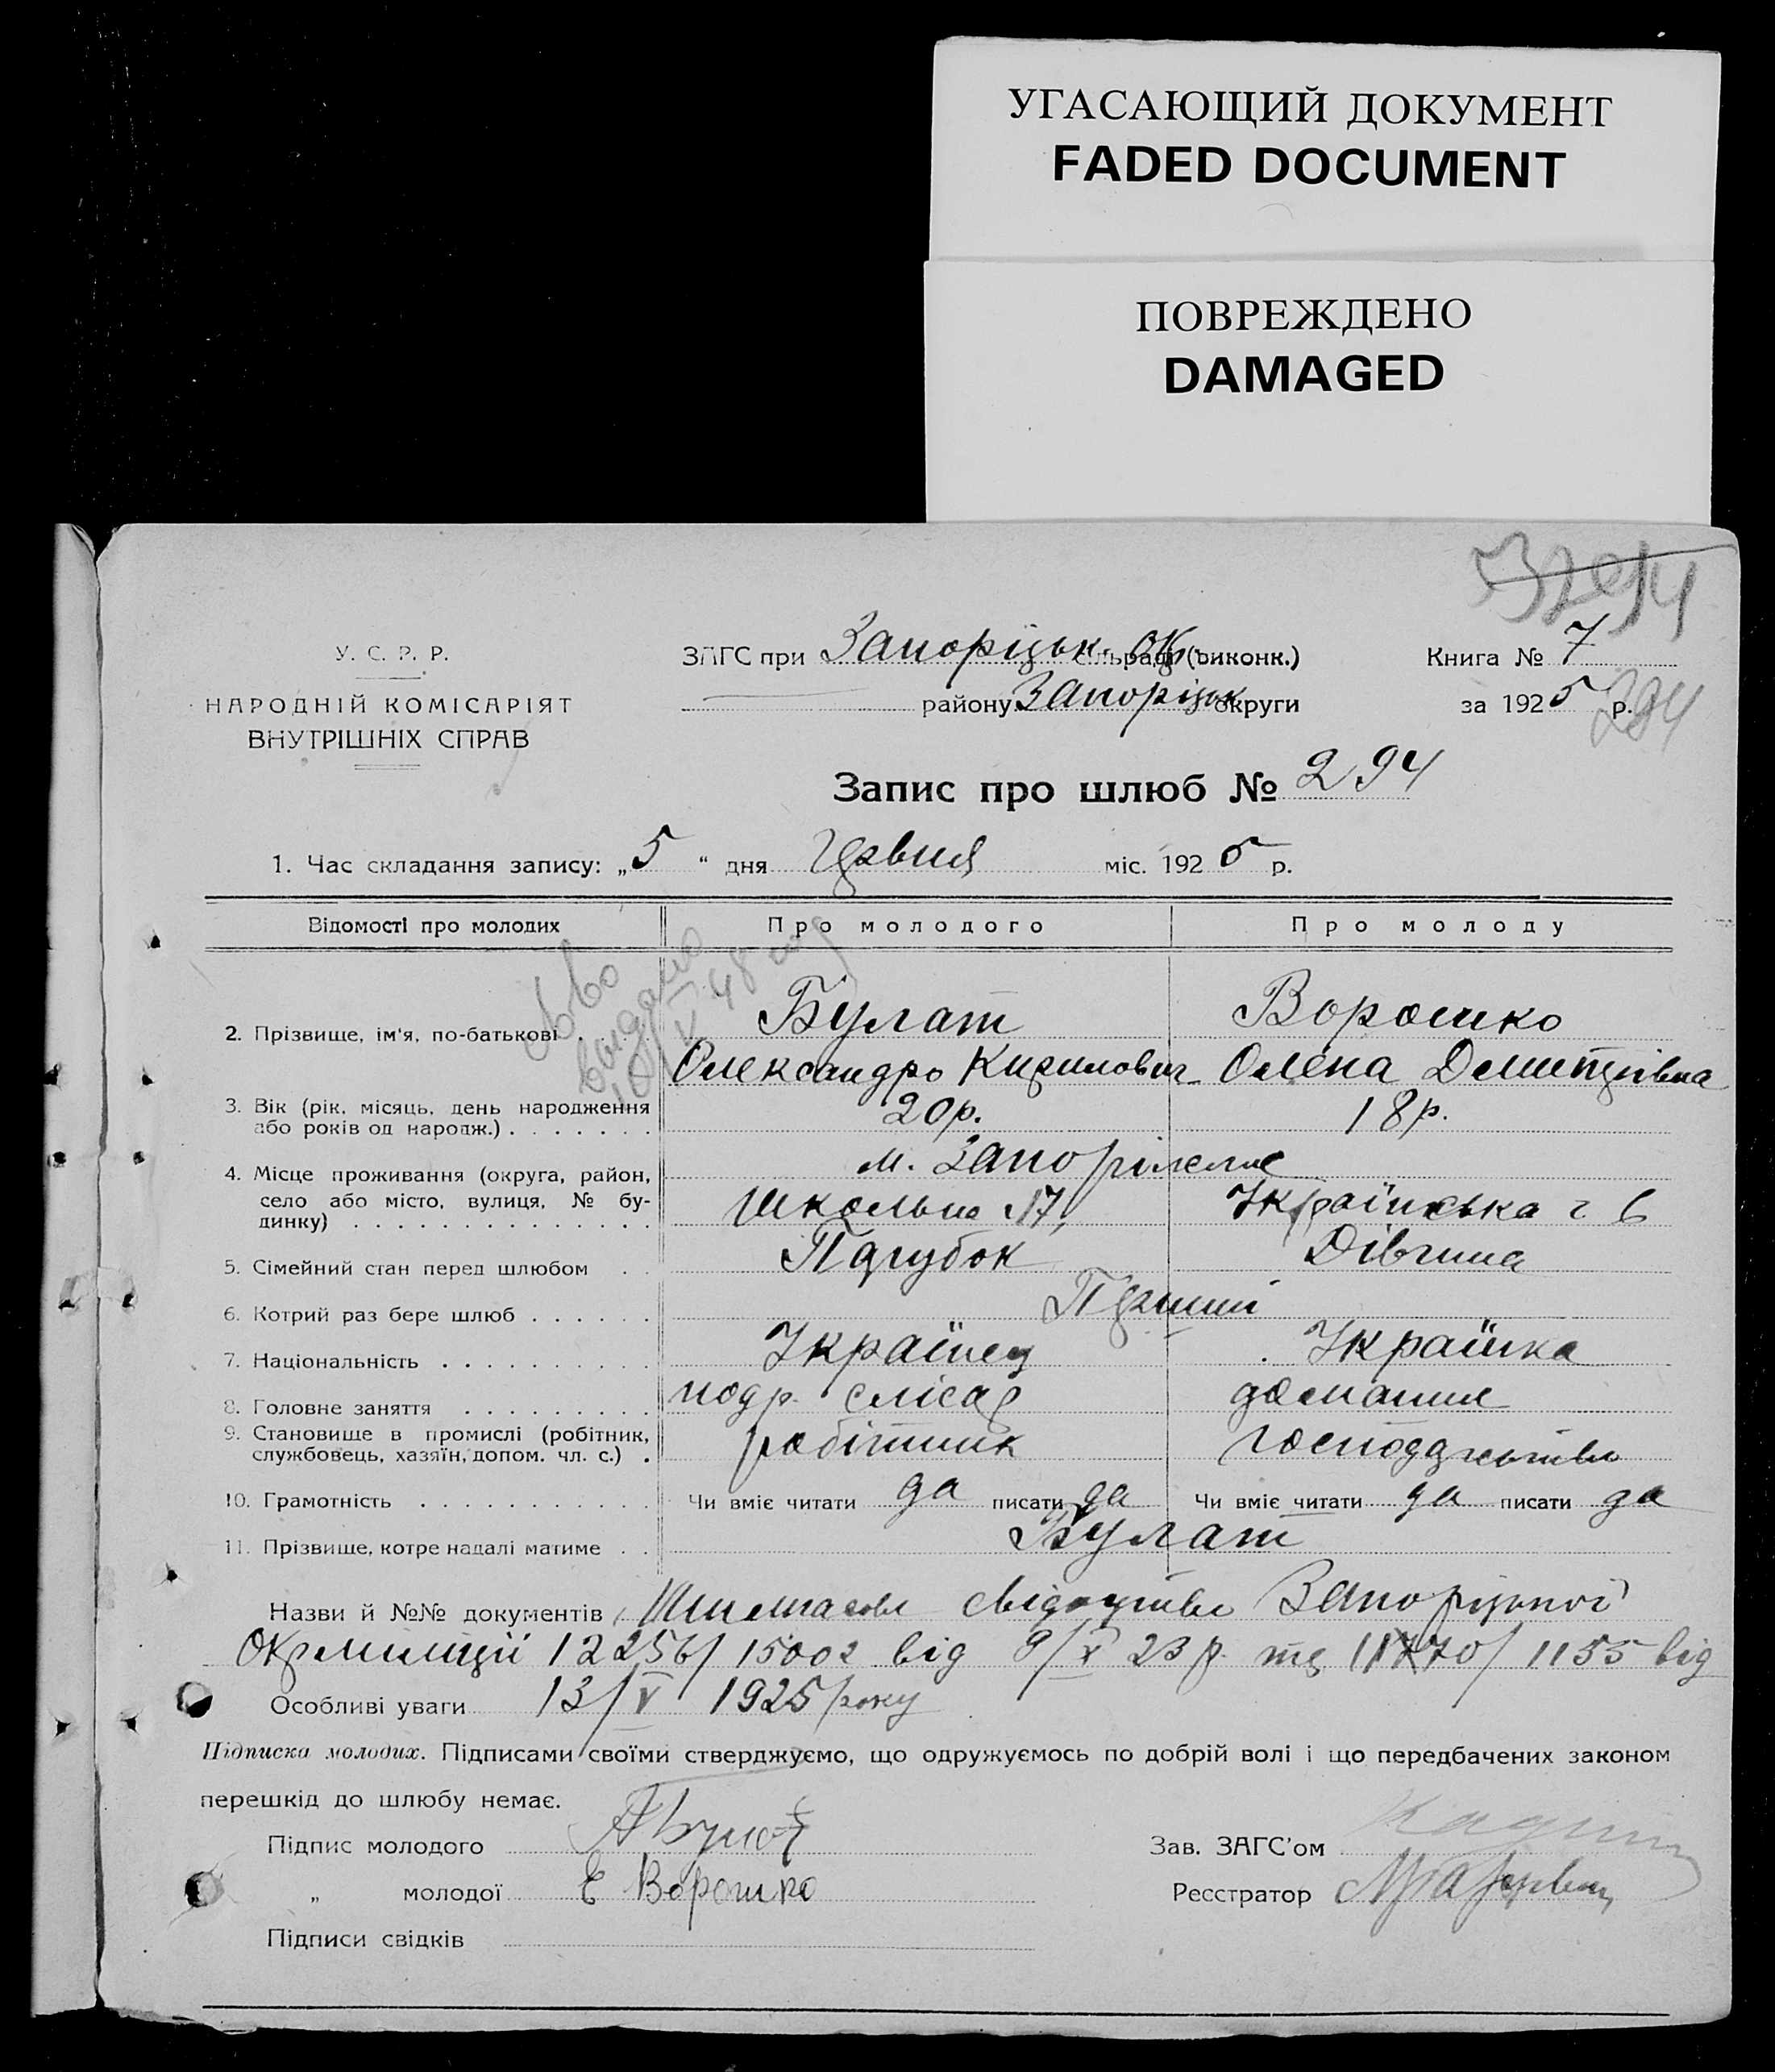 УГАСАЮЩИЙ ДОКУМЕНТ
FADED DOCUMENT
ПОВРЕЖДЕНО
DAMAGED
У. С. Р. Р.
НАРОДНІЙ КОМІСАРІЯТ
ВНУТРІШНІХ СПРАВ
ЗАГС при Запоріцьк. Ок. сільради (виконк.)
району Запоріцьк округи
Книга № 7
за 1925 р.
294
Запис про шлюб № 294
1. Час складання запису: „5“ дня Червня міс. 1925 р.
Відомості про молодих Про молодого Про молоду
2. Прізвище, ім'я, по-батькові Булат Ворошко
Олександро Кирилович Олена Дмитрівна
3. Вік (рік, місяць, день народження або років од народж.) 20р. 18р.
4. Місце проживання (округа, район, село або місто, вулиця, № будинку) м. Запоріжжє
Школьна 17, Українська ч 6
5. Сімейний стан перед шлюбом Парубок Дівчина
6. Котрий раз бере шлюб Перший
7. Національність Українец Українка
8. Головне заняття подр. слісар домашнє
9. Становище в промислі (робітник, службовець, хазяїн, допом. чл. с.) робітник господарство
10. Грамотність Чи вміє читати да писати да Чи вміє читати да писати да
11. Прізвище, котре надалі матиме Булат
Назви й №№ документів свідоцтва Запоріцької
Окрмиліції 12256/15002 від 9/X 23 р. та 11770/1155 від
Особливі уваги 13/V 1925 року
Підписка молодих. Підписами своїми стверджуємо, що одружуємось по добрій волі і що передбачених законом
перешкід до шлюбу немає.
Підпис молодого АБулат
„ молодої Е Ворошко
Підписи свідків
Зав. ЗАГС'ом
Реєстратор